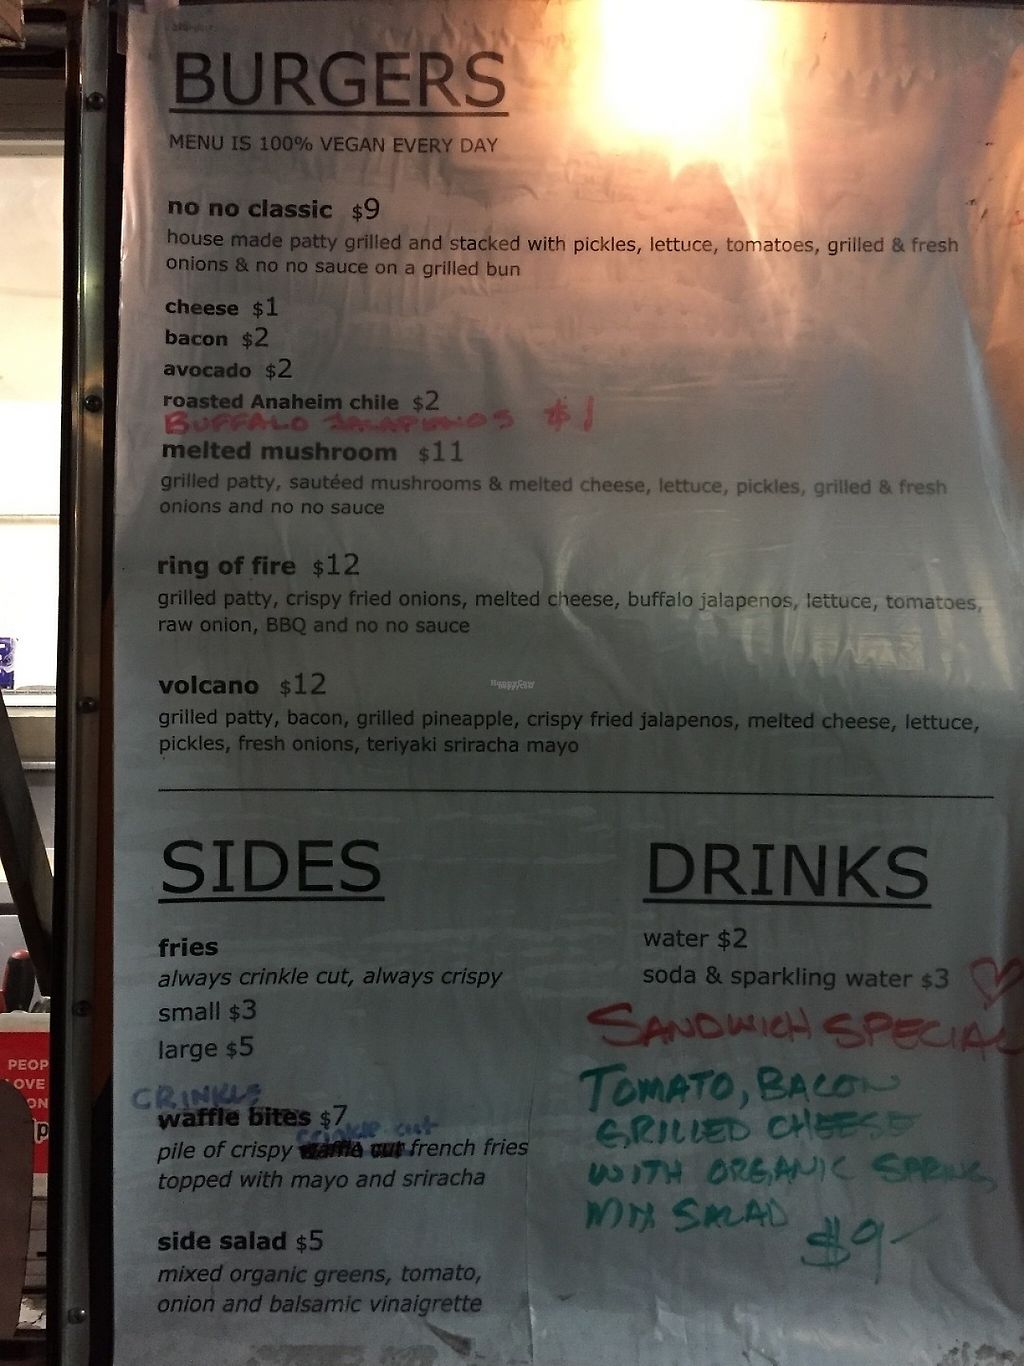 BURGERS
MENU IS 100% VEGAN EVERY DAY
no no classic $9
house made patty grilled and stacked with pickles, lettuce, tomatoes, grilled & fresh
onions & no no sauce on a grilled bun
cheese $1
bacon $2
avocado $2
roasted Anaheim chile $2
BUFFALO JALAPENOS $1
melted mushroom $11
grilled patty, sautéed mushrooms & melted cheese, lettuce, pickles, grilled & fresh
onions and no no sauce
ring of fire $12
grilled patty, crispy fried onions, melted cheese, buffalo jalapenos, lettuce, tomatoes,
raw onion, BBQ and no no sauce
volcano $12
grilled patty, bacon, grilled pineapple, crispy fried jalapenos, melted cheese, lettuce,
pickles, fresh onions, teriyaki sriracha mayo
SIDES
fries
always crinkle cut, always crispy
small $3
large $5
CRINKLE
waffle bites $7
crinkle cut
pile of crispy waffle cut french fries
topped with mayo and sriracha
side salad $5
mixed organic greens, tomato,
onion and balsamic vinaigrette
DRINKS
water $2
soda & sparkling water $3
SANDWICH SPECIAL
TOMATO, BACON
GRILLED CHEESE
WITH ORGANIC SPRING
MIX SALAD
$9-
HappyCow
PEOP
LOVE
ON